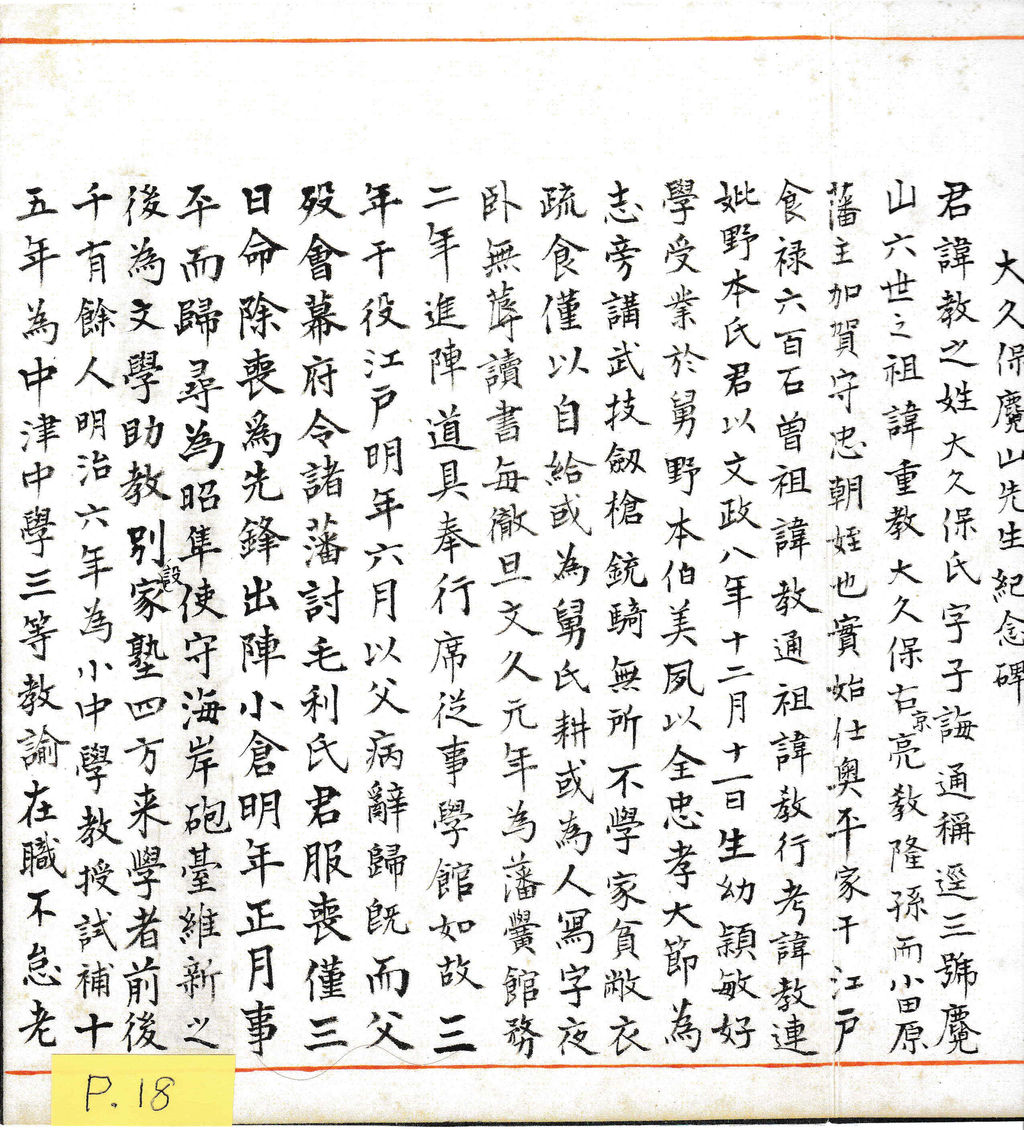 大久保麑山先生紀念碑
君諱教之姓大久保氏字子誨通稱逕三號麑
山六世之祖諱重教大久保右京亮教隆孫而小田原
藩主加賀守忠朝姪也實始仕奧平家于江戸
食禄六百石曽祖諱教通祖諱教行考諱教連
妣野本氏君以文政八年十二月十一日生幼穎敏好
學受業於舅野本伯美夙以全忠孝大節為
志旁講武技劔槍銃騎無所不學家貧敝衣
疏食僅以自給或為舅氏耕或為人寫字夜
卧無蓐讀書每徹旦文久元年為藩黌館務
二年進陣道具奉行席従事學館如故三
年干役江戸明年六月以父病辭歸既而父
歿會幕府令諸藩討毛利氏君服喪僅三
日命除喪爲先鋒出陣小倉明年正月事
平而歸尋為昭隼使守海岸砲臺維新之
後為文學助教別設家塾四方来學者前後
千有餘人明治六年為小中學教授試補十
五年為中津中學三等教諭在職不怠老
P.18